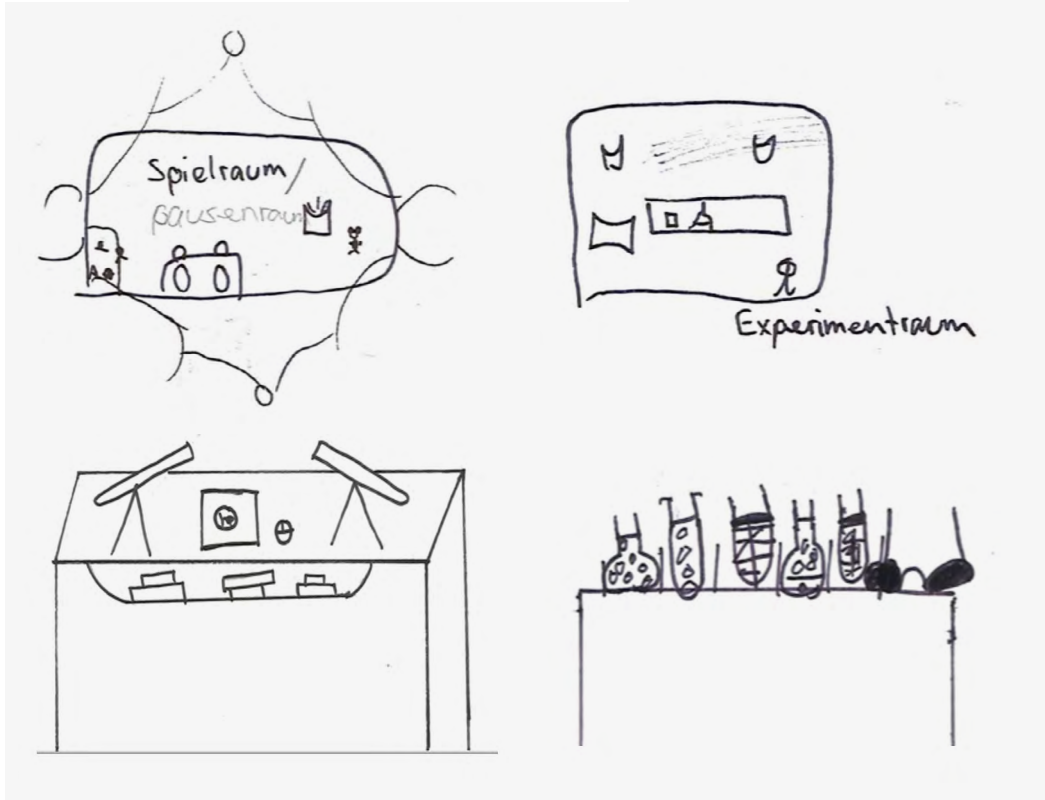 Spielraum/
pausenraum
Experimentraum